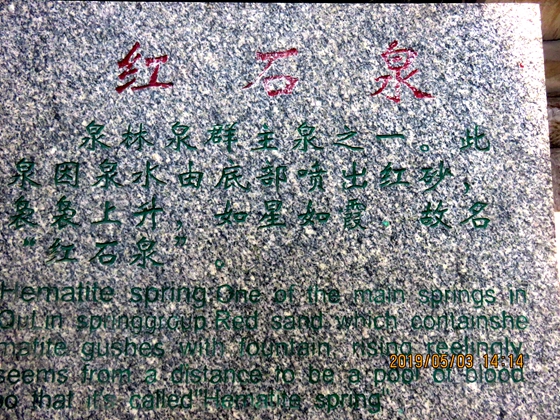 红石泉
泉林泉群主泉之一。此
泉因泉水由底部喷出红砂，
袅袅上升，如星如霞．故名
“红石泉”。
Hematite spring:One of the main springs in
QuLin springgroup Red sand which containshe
matite gushes with fountain, rising reelingly,
seems from a distance to be a pool of blood
so that it's called Hematite spring
2019/05/03 14:14